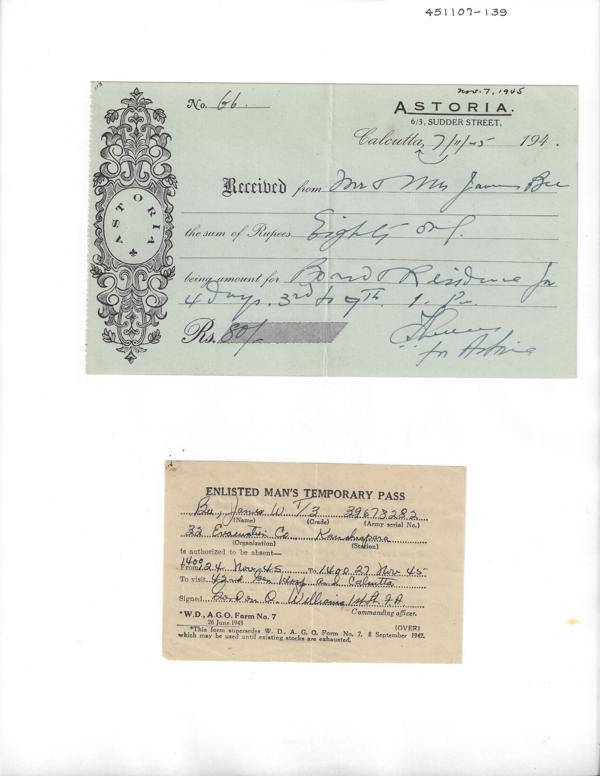 451107-139
Nov. 7, 1945
No. 66.
ASTORIA.
6/3, SUDDER STREET,
Calcutta, 7/11/45 194 .
ASTORIA
Received from Mr & Mrs James Bee
the sum of Rupees Eighty only.
being amount for Board & Residence for
4 Days. 3rd to 7th.
Rs. 80/-
for Astoria
ENLISTED MAN'S TEMPORARY PASS
Bee, James W. T/3 39678282
(Name) (Grade) (Army serial No.)
Evacuation Co Kanchrapara
(Organization) (Station)
is authorized to be absent—
From 1400 24 Nov 45 To 1400 27 Nov 45
To visit 142nd Gen Hosp and Calcutta
Signed Gordon Williams 1st Lt
Commanding officer.
*W. D., A. G. O. Form No. 7
26 June 1943
(OVER)
*This form supersedes W. D., A. G. O. Form No. 7, 8 September 1942,
which may be used until existing stocks are exhausted.